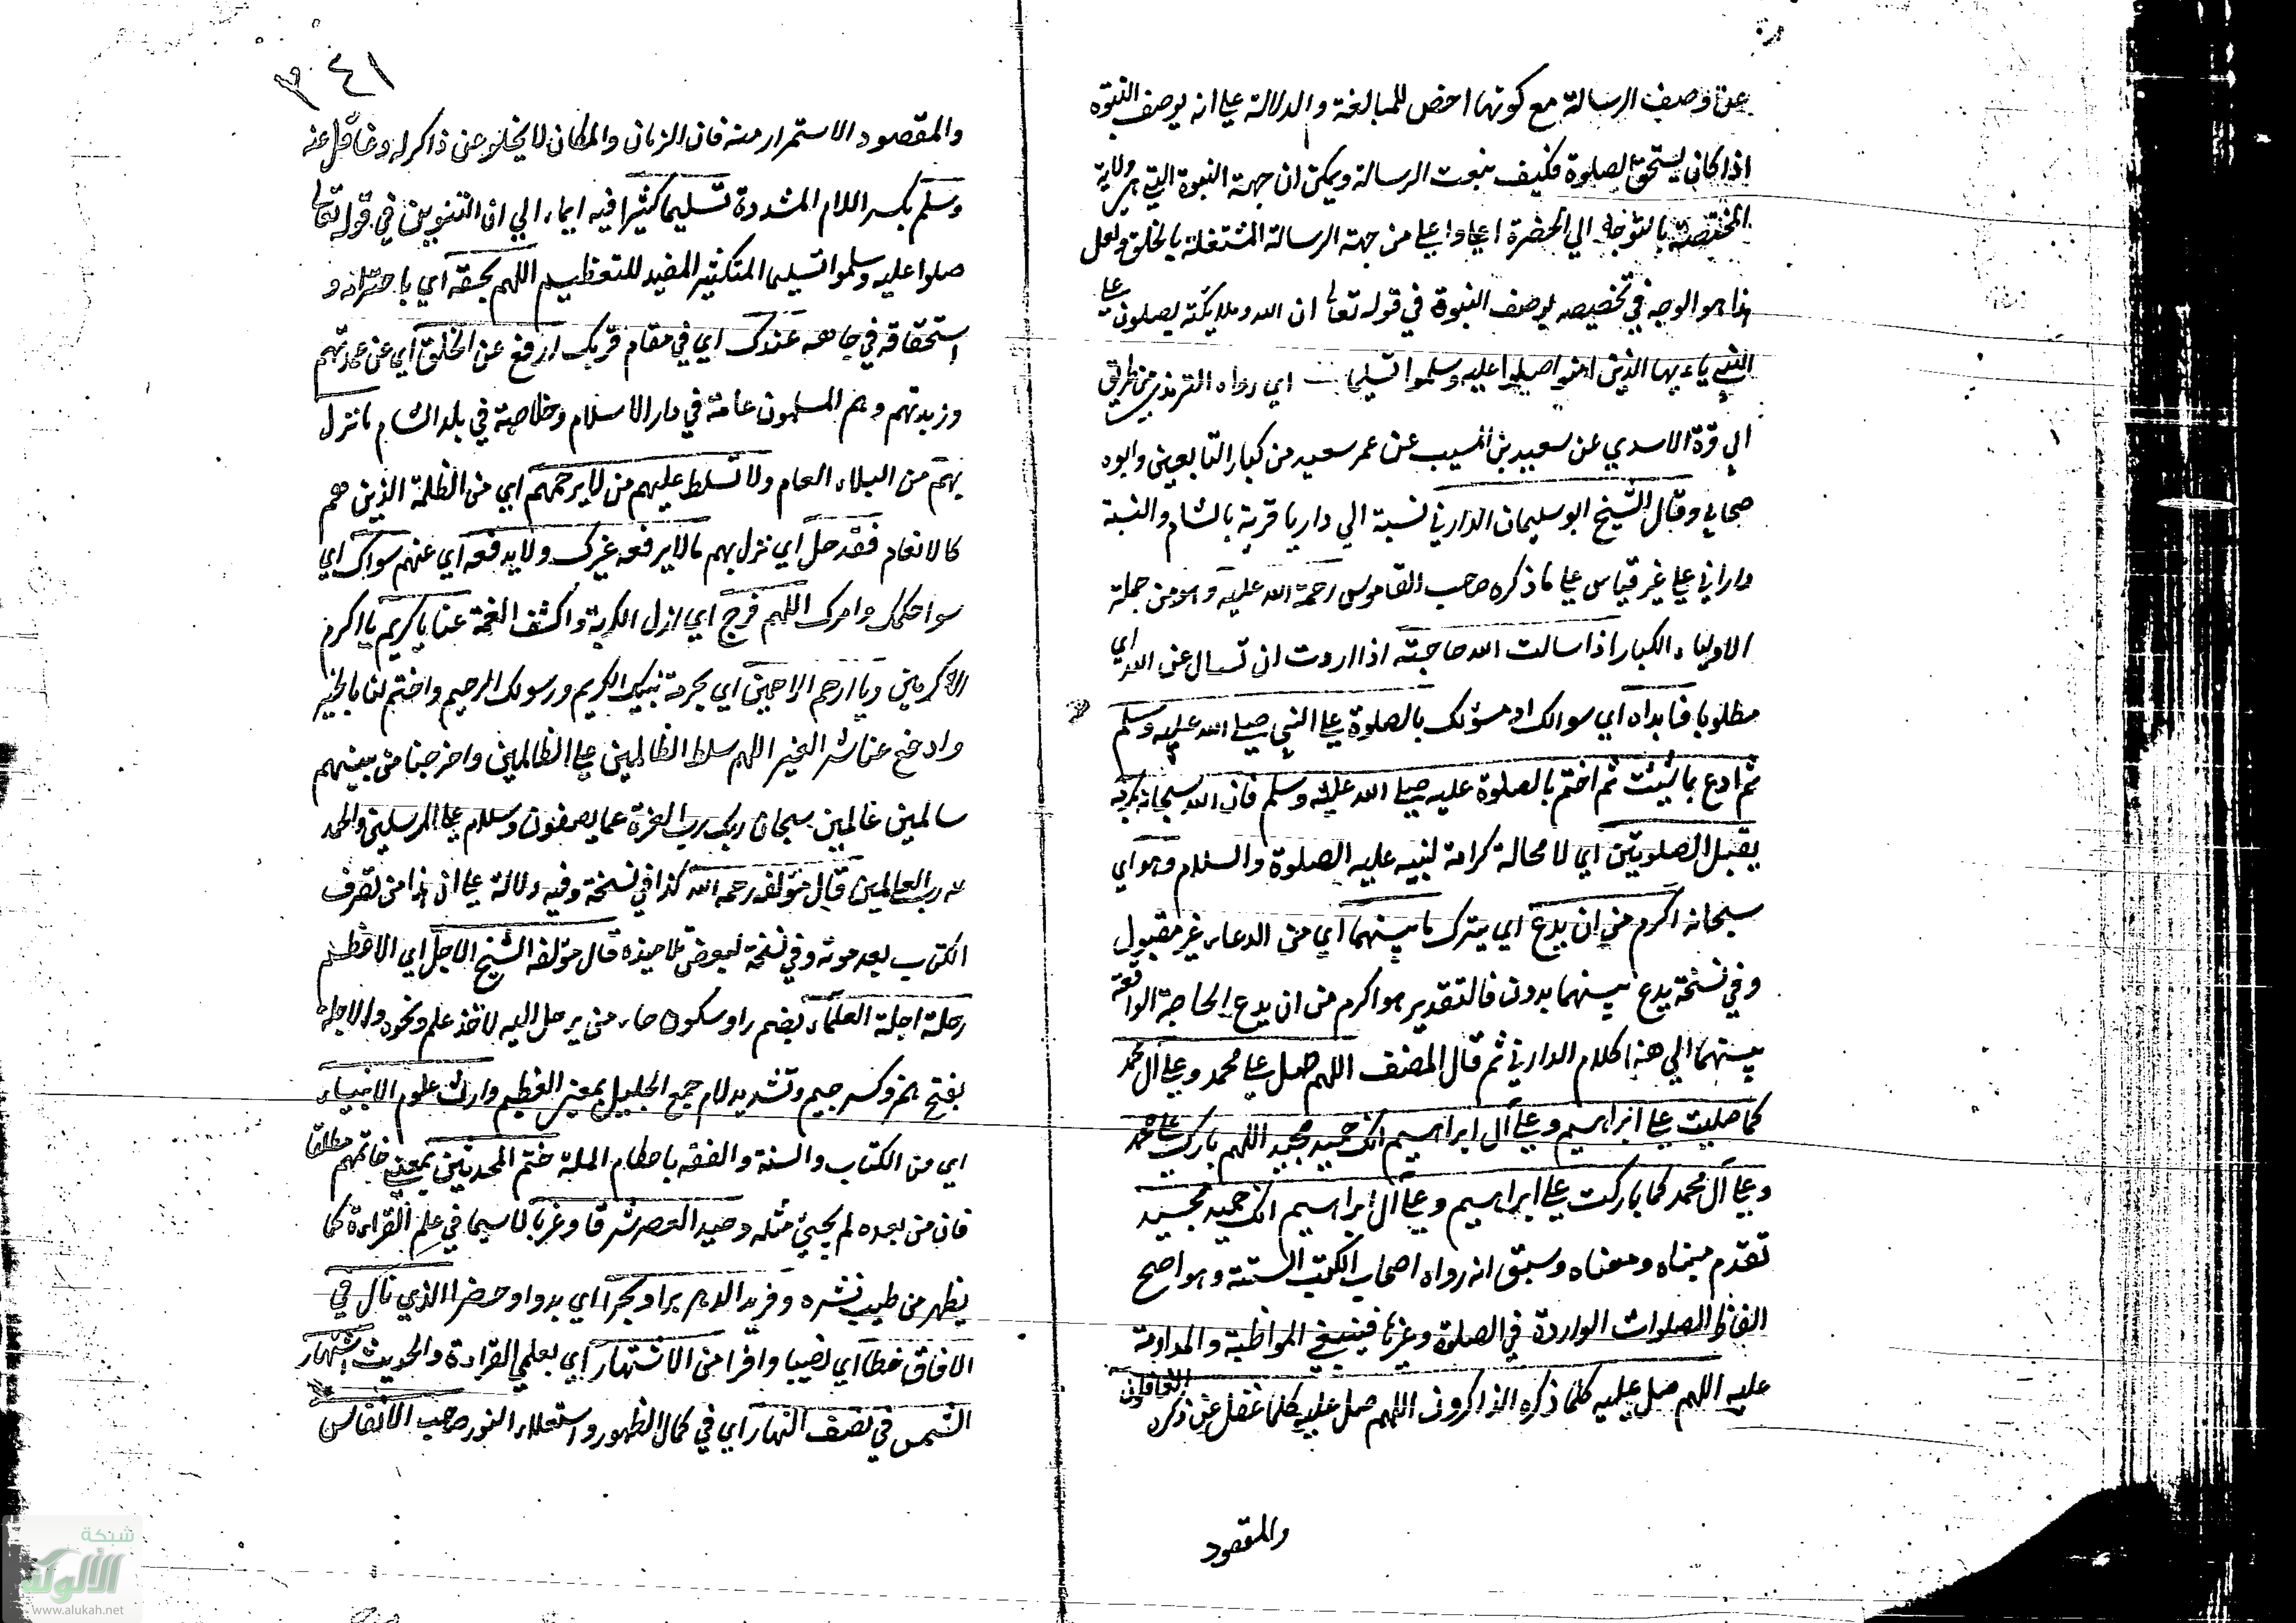 عن وصف الرسالة مع كونها اخص للمبالغة والدلالة على انه يوصف النبوة
اذا كان يستحق الصلوة فكيف بنعت الرسالة ويمكن ان جهة النبوة التي هي ولاية
المختصة بالتوجه الي الحضرة اعلا واعلي من جهة الرسالة المشتغلة بالخلق ولعل
هذا هو الوجه في تخصيصه بوصف النبوة في قوله تعالى ان الله وملايكته يصلون على
النبي ياءيها الذين امنوا صلوا عليه وسلموا تسليما اي رواه الترمذي من طريق
ابي قرة الاسدي عن سعيد بن المسيب عن عمر سعيد من كبار التابعين وابوه
صحابي وقال الشيخ ابو سليمان الداراني نسبة الي داريا قرية بالشام والنسبة
داراني علي غير قياس علي ما ذكره صاحب القاموس رحمة الله عليه وهو من جملة
الاولياء الكبار اذا سالت الله حاجته اذا اردت ان تسال عن الله اي
مطلوبا فابداه اي سوالك او مسؤلك بالصلوة على النبي صلى الله عليه وسلم
ثم ادع بما شيئت ثم اختم بالصلوة عليه صلى الله عليه وسلم فان الله سبحانه بكرمه
يقبل الصلوتين اي لا محالة كرامة لنبيه عليه الصلوة والسلام وهو اي
سبحانه اكرم من ان يدع اي يترك ما بينهما اي من الدعاء غير مقبول
وفي نسخة يدع بينهما بدون فالتقدير هو اكرم من ان يدع الحاجة الواقعة
بينهما الي هنا كلام الداراني ثم قال المصنف اللهم صل على محمد وعلى آل محمد
كما صليت على ابراهيم وعلى آل ابراهيم انك حميد مجيد اللهم بارك على محمد
وعلى آل محمد كما باركت على ابراهيم وعلى آل ابراهيم انك حميد مجيد
تقدم مبناه ومعناه وسبق انه رواه اصحاب الكتب الستة وهو اصح
الفاظ الصلوات الواردة في الصلوة وغيرها فينبغي المواظبة والمداومة
عليه اللهم صل عليه كلما ذكره الذاكرون اللهم صل عليه كلما غفل عن ذكره الغافلون
والمقصود
٣٤١
والمقصود الاستمرار منه فان الزمان والمكان لا يخلو عن ذاكر له وغافل عنه
وسلم بكسر اللام المشددة تسليما كثيرا فيه ايماء الي ان التنوين في قوله تعالى
صلوا عليه وسلموا تسليما المتكثير المفيد للتعظيم اللهم بحقه اي باحترامه و
استحقاقه في جاهه عندك اي في مقام قربك ارفع عن الخلق اي عن عمدتهم
وزبدتهم وهم المسلمون عامة في دار الاسلام وخاصة في بلد الشام ما نزل
بهم من البلاء العام ولا تسلط عليهم من لا يرحمهم اي من الظلمة الذين هم
كالانعام فقد حل اي نزل بهم مالا يرفعه غيرك ولا يدفعه اي عنهم سواك اي
سوا حكمك وامرك اللهم فرج اي ازل الكربة واكشف الغمة عنا يا كريم يا اكرم
الاكرمين ويا ارحم الراحمين اي بحرمة نبيك الكريم ورسولك الرحيم واختم لنا بالخير
وادفع عنا شر الغير اللهم سلط الظالمين على الظالمين واخرجنا من بينهم
سالمين غالمين سبحان ربك رب العزة عما يصفون وسلام على المرسلين والحمد
لله رب العالمين قال مؤلفه رحمه الله كذا في نسخة وفيه دلالة على ان هذا من تصرف
الكتاب بعد موته وفي نسخة لبعض تلاميذه قال مؤلفه الشيخ الاجل اي الاعظم
رحلة اجلة العلماء بضم راو سكون حاء من يرحل اليه لاخذ علم ونحوه والاجلة
بفتح همز وكسر جيم وتشديد لام جمع الجليل بمعني العظيم وارث علوم الانبياء
اي من الكتاب والسنة والفقه باحكام الملة ختم المحدثين بمعني خاتمهم مطلقا
فان من بعده لم يجيئ مثله وحيد العصر شرقا وغربا لا سيما في علم القراءة كما
يظهر من طيب نشره وفريد الدهر برا وبحرا اي بدوا وحضرا الذي نال في
الافاق خطا اي نصيبا وافرا من الاشتهار اي بعلمي القراءة والحديث اشتهار
الشمس في نصف النهار اي في كمال الظهور واستعلاء النور صاحب الانفاس
شبكة
الألوكة
www.alukah.net